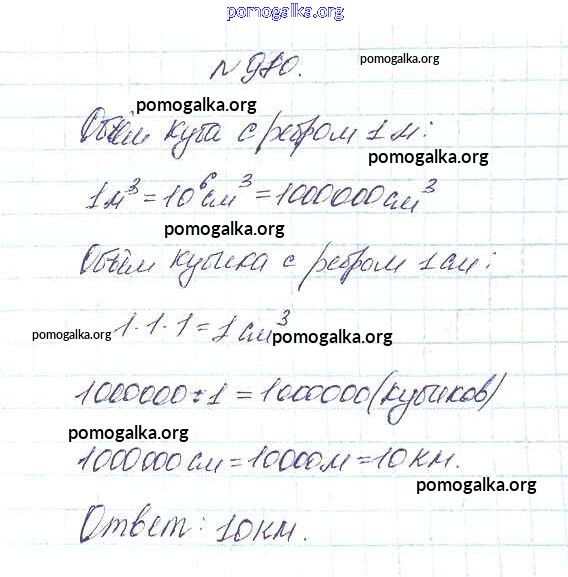 pomogalka.org
№ 970.
pomogalka.org
pomogalka.org
Объём куба с ребром 1 м:
pomogalka.org
1 м³ = 10⁶ см³ = 1000000 см³
pomogalka.org
Объём кубика с ребром 1 см:
pomogalka.org 1 · 1 · 1 = 1 см³
pomogalka.org
1000000 ÷ 1 = 1000000 (кубиков)
pomogalka.org
1000000 см = 10000 м = 10 км.
pomogalka.org
Ответ: 10 км.